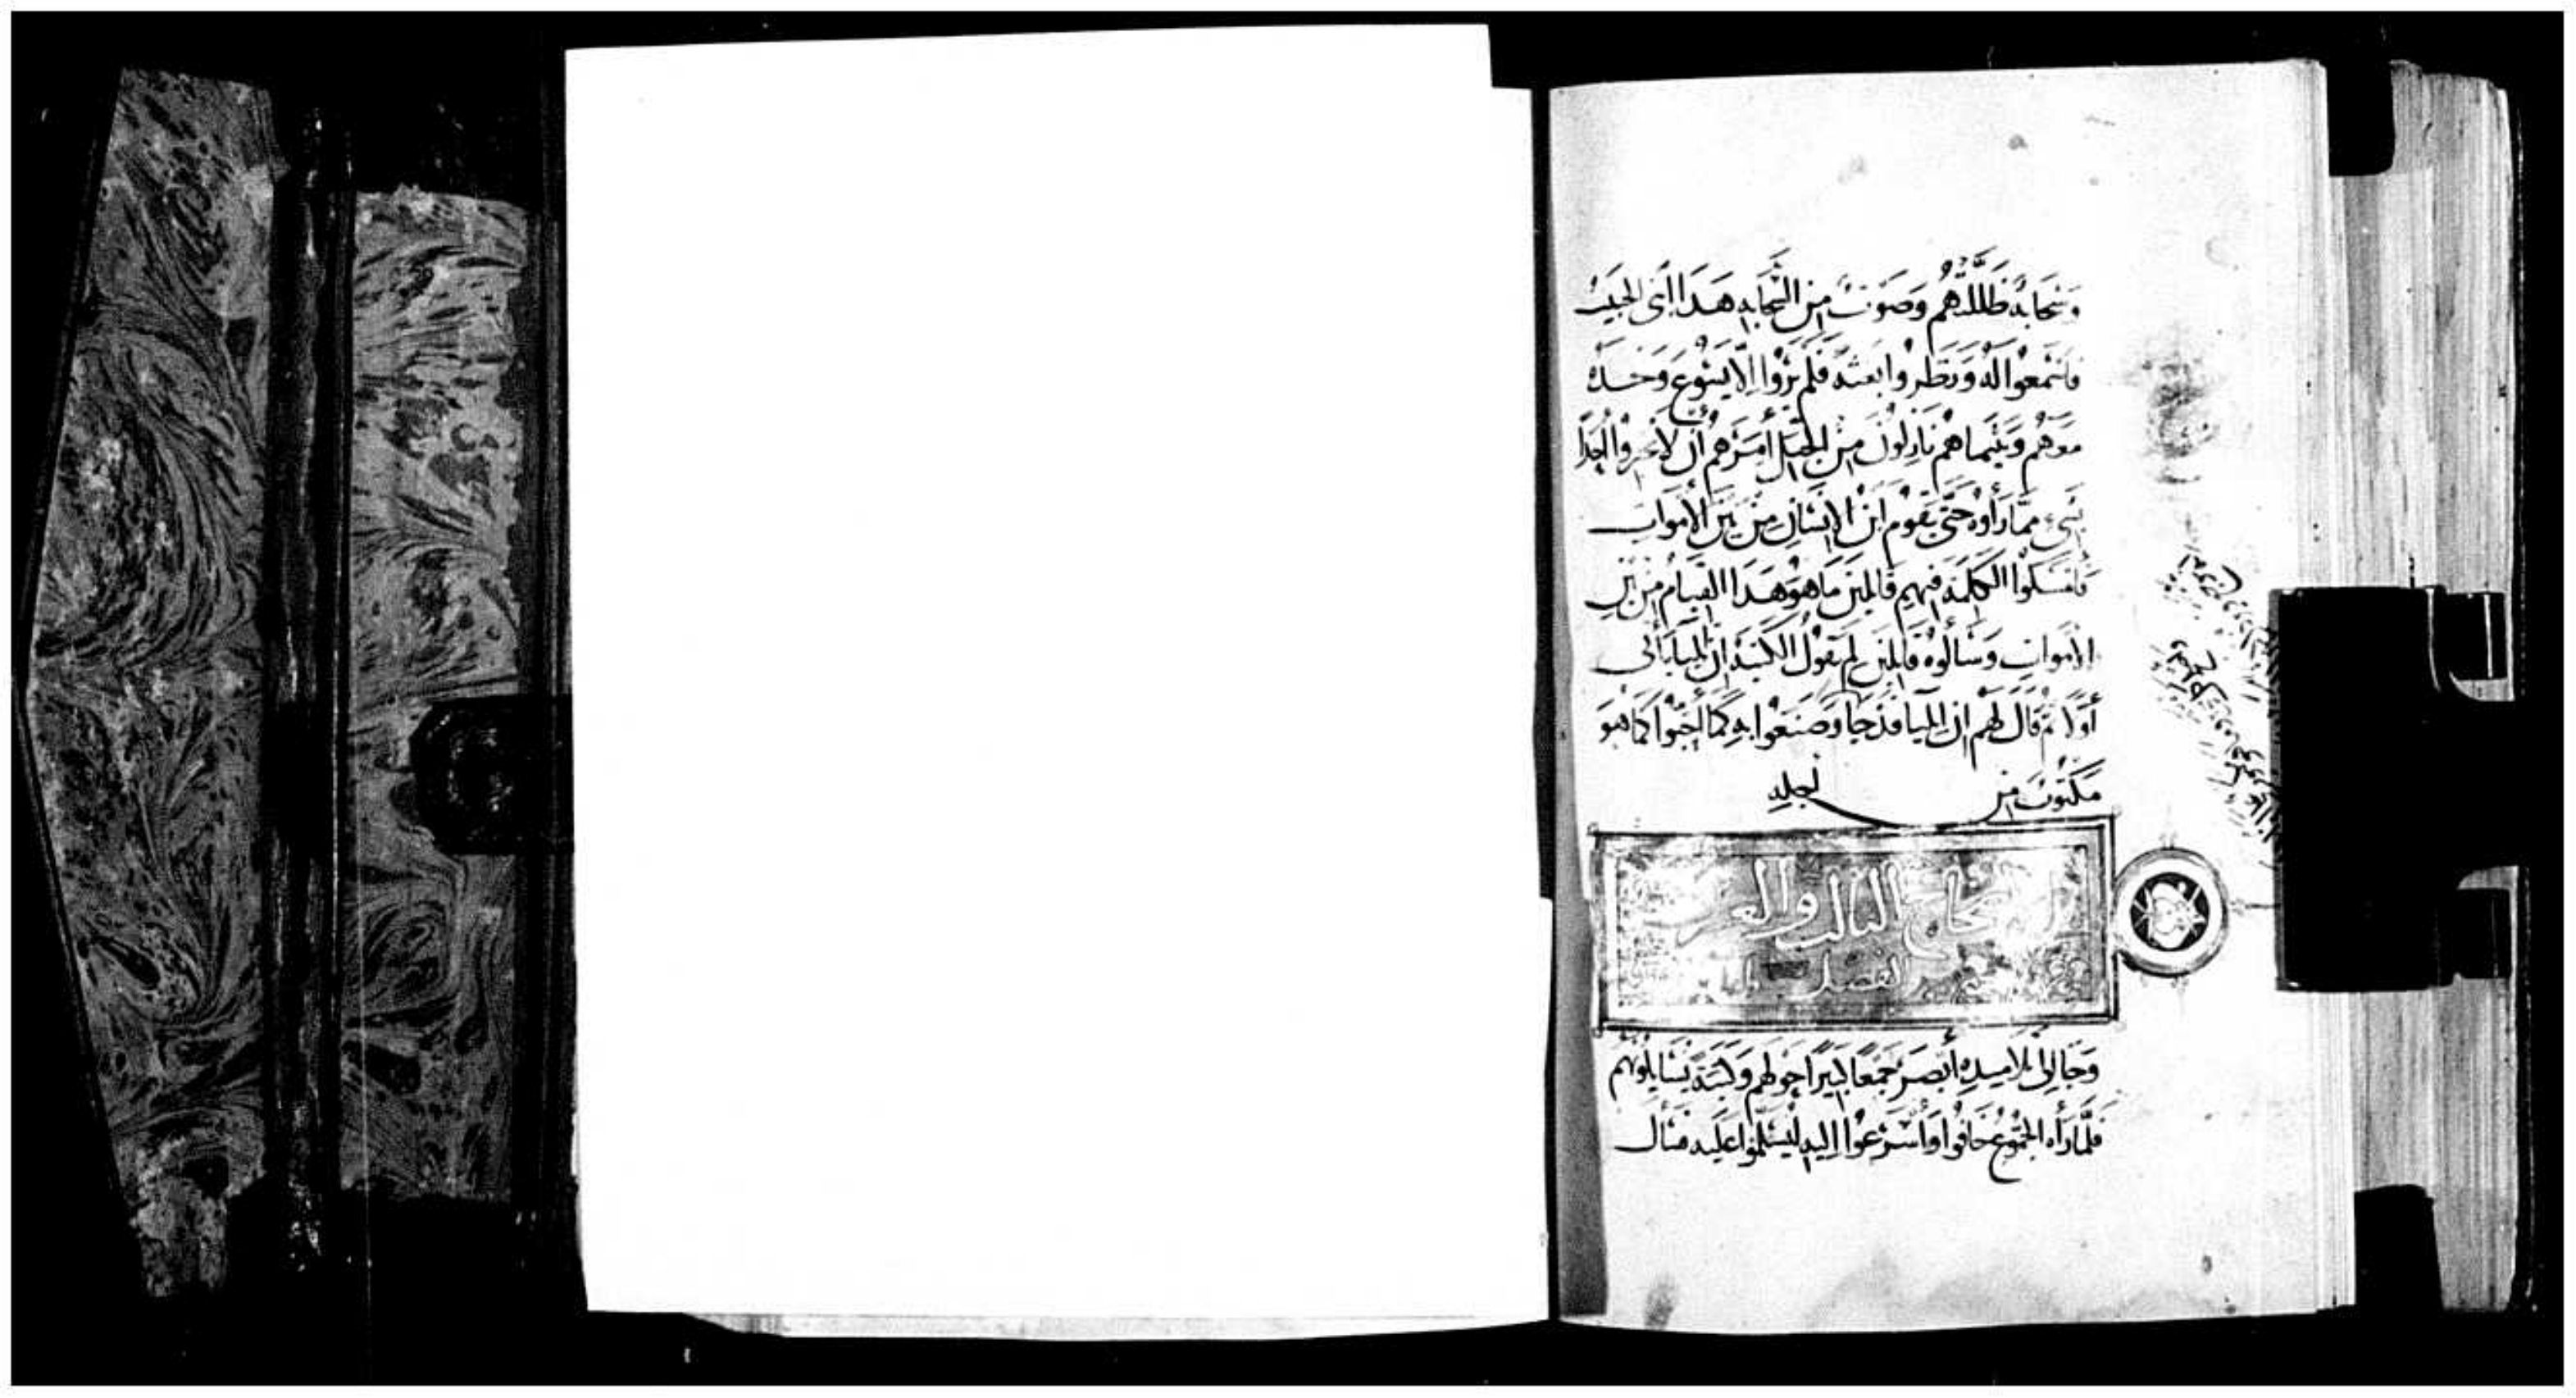 وسحابة ظللتهم وصوت من السحابة هذا ابنى الحبيب
فاسمعوا له ونظروا بغتة فلم يروا إلا يسوع وحده
معهم وبينما هم نازلون من الجبل أمرهم أن لا يخبروا أحدًا
بشىء مما رأوه حتى يقوم ابن الإنسان من بين الأموات
فامسكوا الكلمة فيهم قائلين ما هو هذا القيام من بين
الأموات وسألوه قائلين لم تقول الكتبة ان إيليا يأتى
أولا ثم قال لهم ان إيليا قد جا وصنعوا به كما أحبوا كما هو
مكتوب من أجله
الاصحاح الثالث والعشرون
الفصل
وجا إلى تلاميذه أبصر جمعا كبيرا حولهم وكتبة يسايلونهم
فلما رأه الجموع خافوا وأسرعوا إليه ليسلموا عليه فسأل